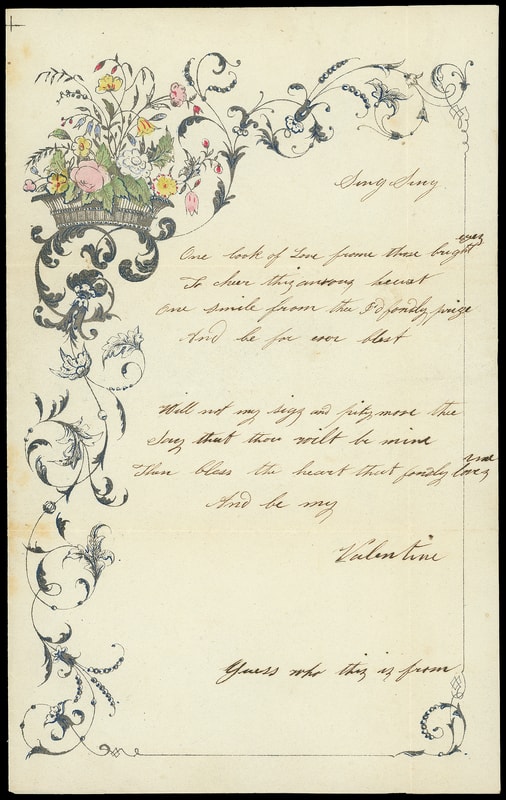 Sing Sing
One look of Love frome thine bright eyes
To cheer this anxious heart
One smile from thee I'd fondly prize
And be for ever blest
Will not my sigs and pity move thee
Say that thou wilt be mine
Then bless the heart that fondly loves thee
And be my
Valentine
Guess who this is from